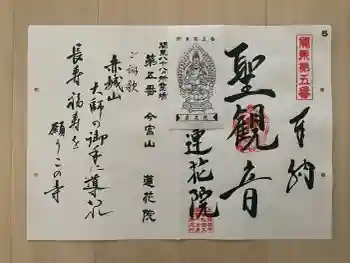 5
関東第五番
奉納
聖観音
蓮花院
関東八十八ヵ所霊場
第五番 今宮山 蓮花院
ご詠歌
赤城山
大師の御手に導かれ
長寿福寿を
願うこの寺